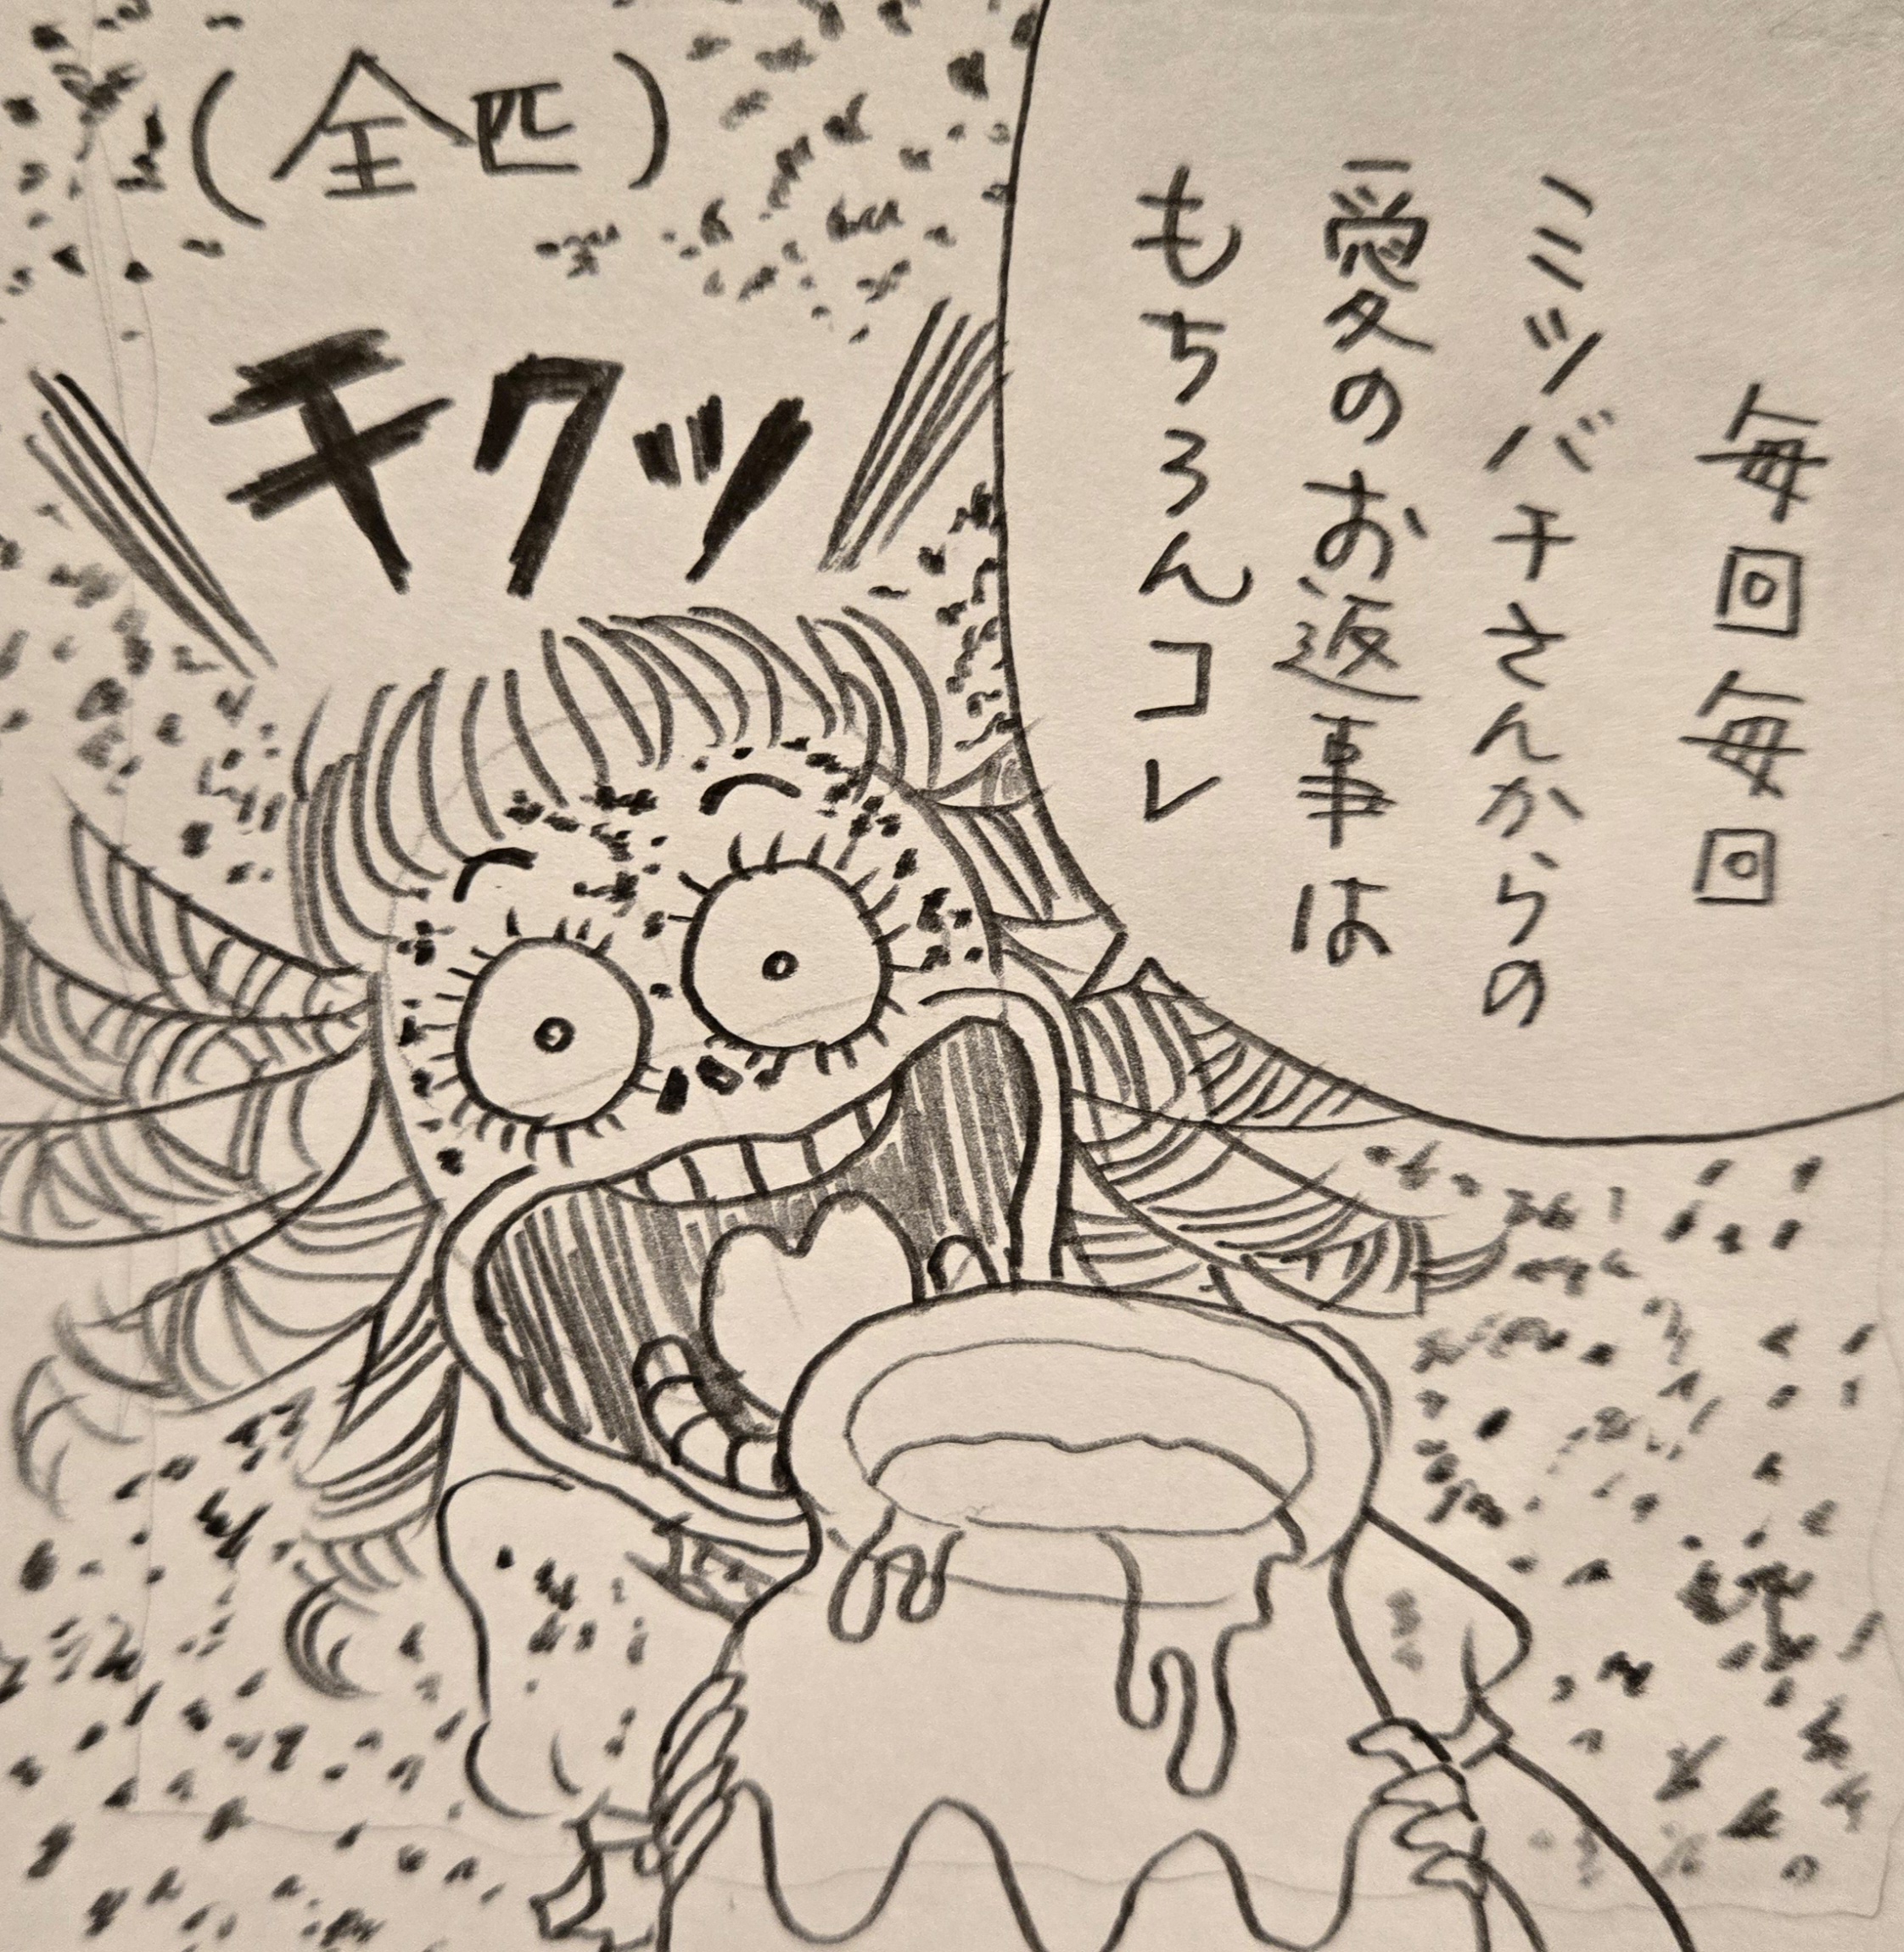 毎回毎回
ミツバチさんからの
愛のお返事は
もちろんコレ
(全匹)
チクッ